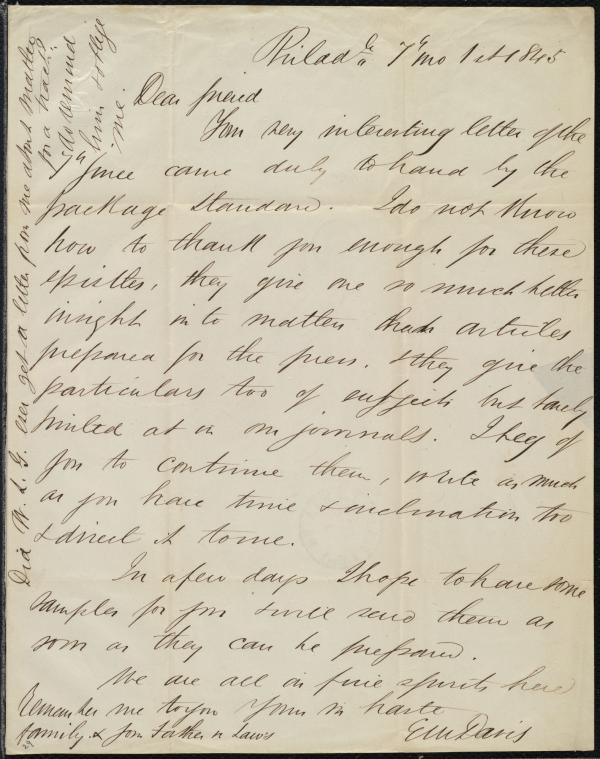 Philad^a 7^th mo 1st 1845
Dear friend
Your very interesting letter of the
7^th June came duly to hand by the
package Standard. I do not know
how to thank you enough for these
epistles, they give one so much better
insight in to matters than articles
prepared for the press. & they give the
particulars too of subjects but barely
hinted at in our journals. I beg of
you to continue them, write as much
as you have time & inclination too
& direct it to me.
In a few days I hope to have some
samples for you & will send them as
soon as they can be prepared.
We are all in fine spirits here
Remember me to you Yours in haste
family. & your Father in Laws E M Davis
Did W. L. G. ever get a letter from me about matter
for a tract?
Do remind
him to oblige
me.
29